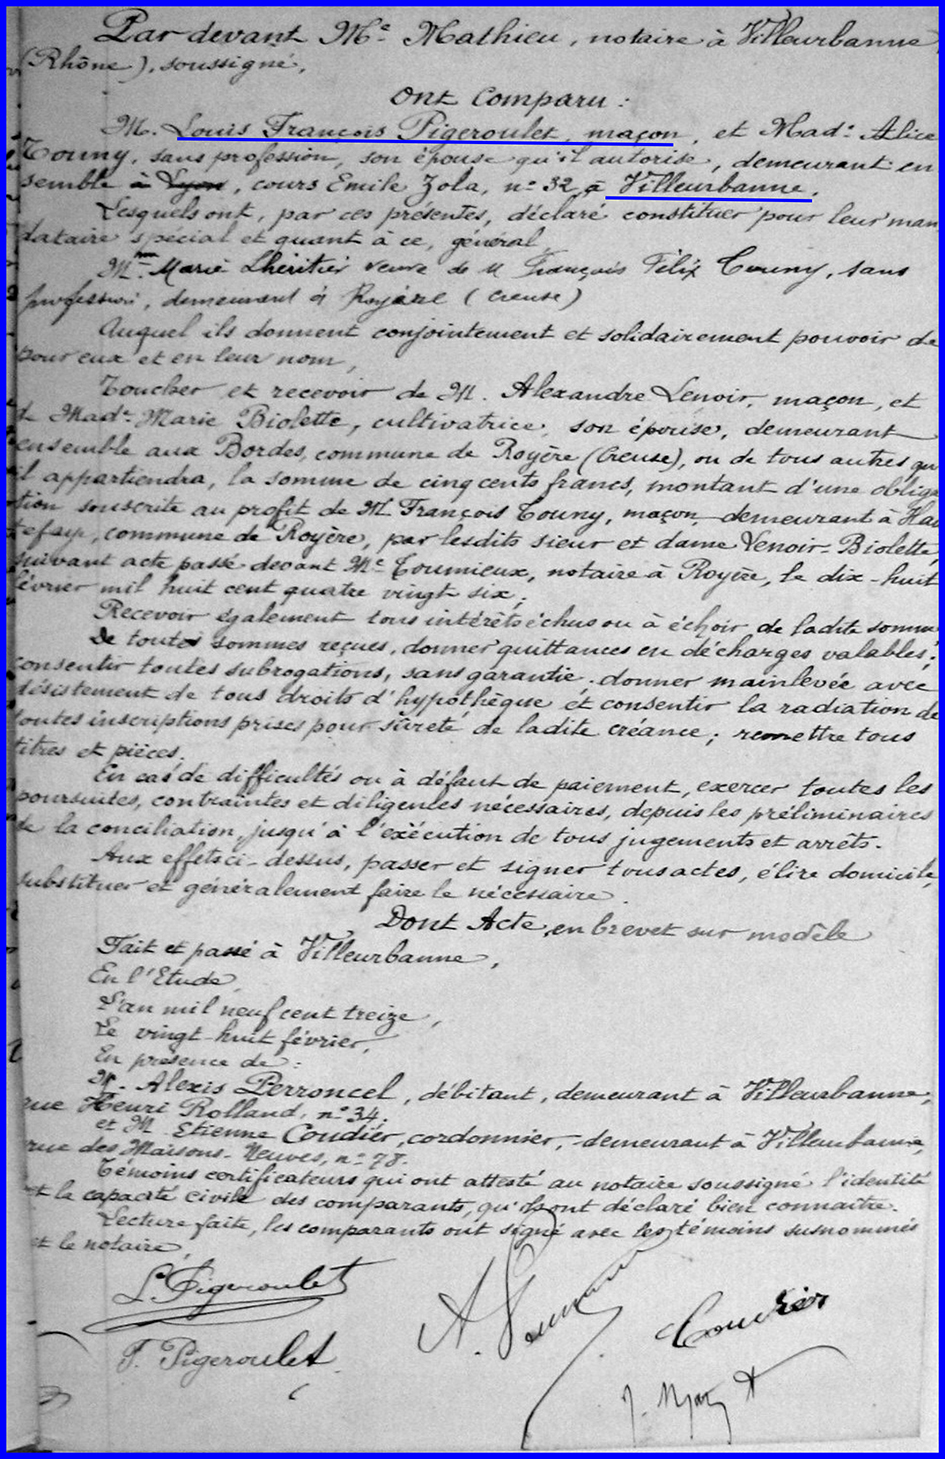 Par devant Me Mathieu, notaire à Villeurbanne
(Rhône), soussigné,
Ont Comparu :
M. Louis François Pigeroulet, maçon, et Made Alice
Touny, sans profession, son épouse qu'il autorise, demeurant en
semble à Lyon, cours Emile Zola, no 32, à Villeurbanne.
Lesquels ont, par ces présentes, déclaré constituer pour leur man
dataire spécial et quant à ce, général,
Mme Marie Lhéritier veuve de M François Félix Touny, sans
profession, demeurant à Royère (Creuse)
Auquel ils donnent conjointement et solidairement pouvoir de
pour eux et en leur nom,
Toucher et recevoir de M. Alexandre Lenoir, maçon, et
de Made Marie Biolette, cultivatrice, son épouse, demeurant
ensemble aux Bordes, commune de Royère (Creuse), ou de tous autres qu
il appartiendra, la somme de cinq cents francs, montant d'une obliga
tion souscrite au profit de M François Touny, maçon, demeurant à
commune de Royère, par lesdits sieur et dame Lenoir-Biolette,
suivant acte passé devant Me Toumieux, notaire à Royère, le dix-huit
février mil huit cent quatre vingt six;
Recevoir également tous intérêts échus ou à échoir de ladite somme
De toutes sommes reçues, donner quittances ou décharges valables;
consentir toutes subrogations, sans garantie; donner mainlevée avec
désistement de tous droits d'hypothèque et consentir la radiation de
toutes inscriptions prises pour sûreté de ladite créance; remettre tous
titres et pièces.
En cas de difficultés ou à défaut de paiement, exercer toutes les
poursuites, contraintes et diligences nécessaires, depuis les préliminaires
de la conciliation, jusqu'à l'exécution de tous jugements et arrêts.
Aux effets ci-dessus, passer et signer tous actes, élire domicile,
substituer et généralement faire le nécessaire.
Dont Acte, en brevet sur modèle
Fait et passé à Villeurbanne,
En l'Etude,
L'an mil neuf cent treize,
Le vingt-huit février,
En présence de :
M. Alexis Perroncel, débitant, demeurant à Villeurbanne,
rue Henri Rolland, no 34,
et M. Etienne Coudier, cordonnier, demeurant à Villeurbanne,
rue des Maisons-Neuves, no 78.
Témoins certificateurs qui ont attesté au notaire soussigné l'identité
et la capacité civile des comparants, qu'ils ont déclaré bien connaître.
Lecture faite, les comparants ont signé avec les témoins susnommés
et le notaire,
L. Pigeroulet
Coudier
F. Pigeroulet